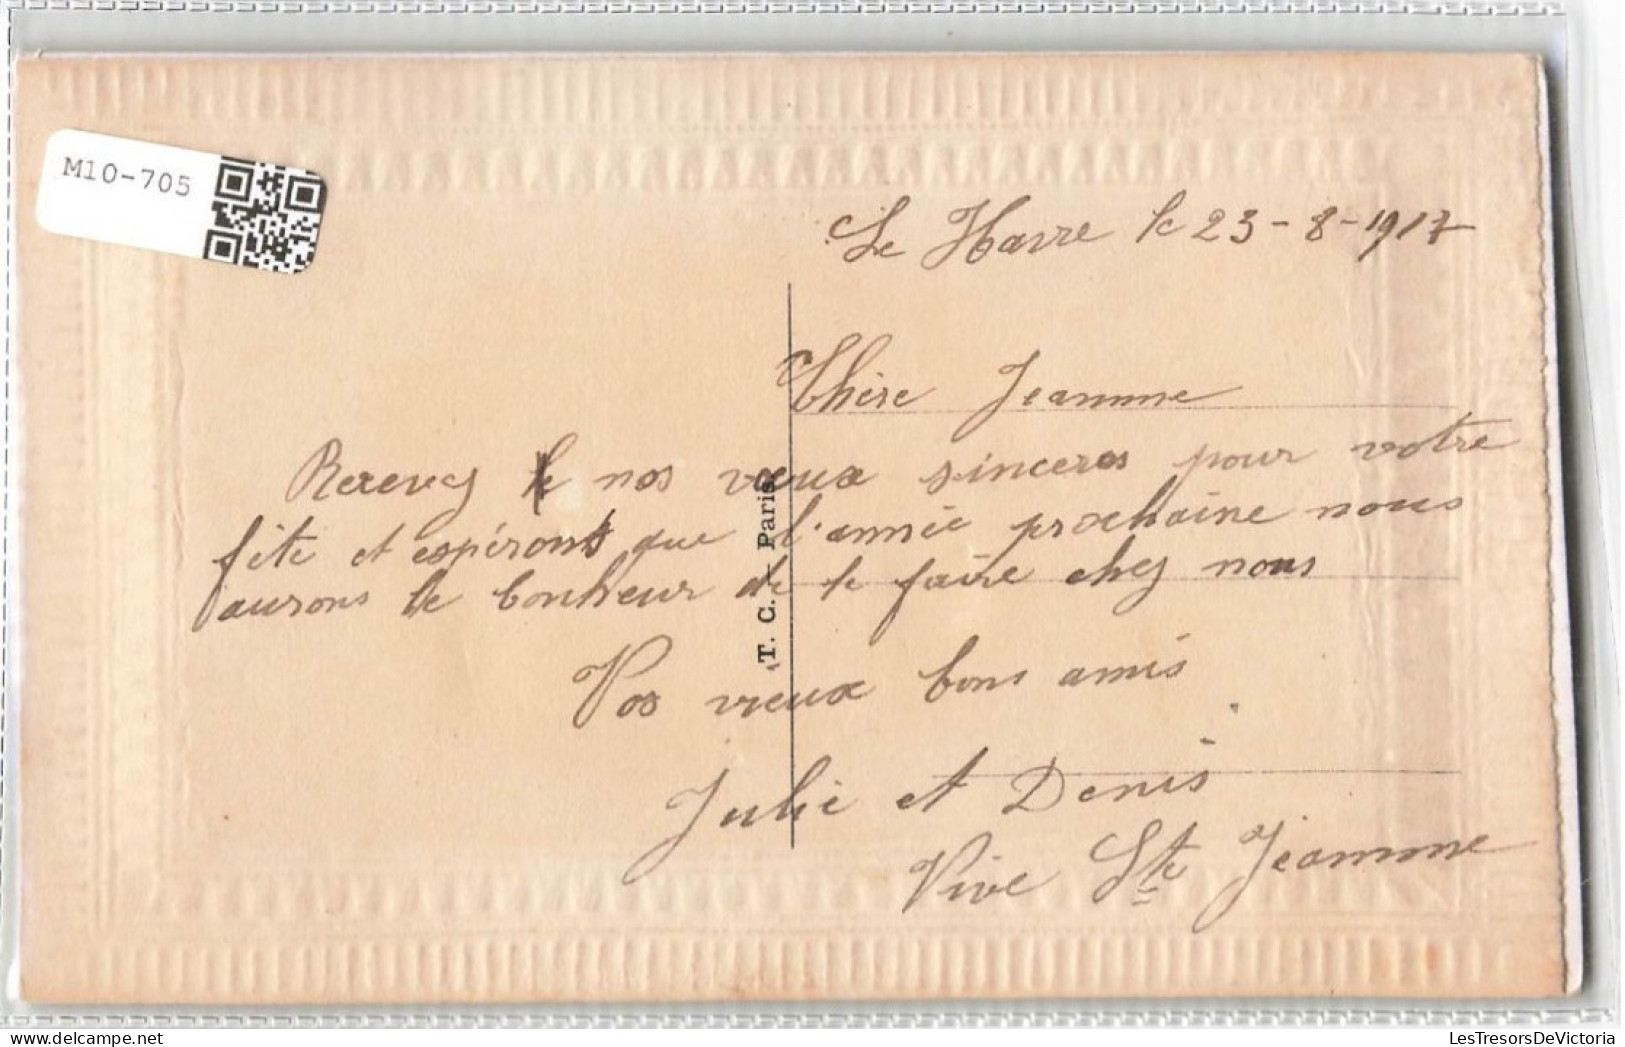 M10-705
Le Havre le 23-8-1917
Chère Jeanne
Recevez nos vœux sinceres pour votre
fête et espérons que l'année prochaine nous
aurons le bonheur de le faire chez nous
Vos vieux bons amis
Julie et Denis
Vive Ste Jeanne
T. C. - Paris.
LesTresorsDeVictoria